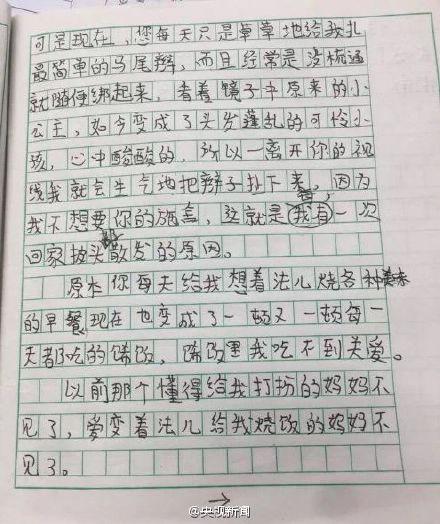 可是现在，您每天只是草草地给我扎
最简单的马尾辫，而且经常是没梳通
就随便绑起来，看着镜子中原来的小
公主，如今变成了头发蓬乱的可伶小
孩，心中酸酸的，所以一离开你的视
线我就会生气地把辫子扯下来，因为
我不想要你的施舍，这就是我有一次
回家披头散发的原因。
原本你每天给我想着法儿烧各种美味
的早餐现在也变成了一顿又一顿每一
天都吃的稀饭，稀饭里我吃不到关爱。
以前那个懂得给我打扮的妈妈不
见了，爱变着法儿给我烧饭的妈妈不
见了。
@央视新闻